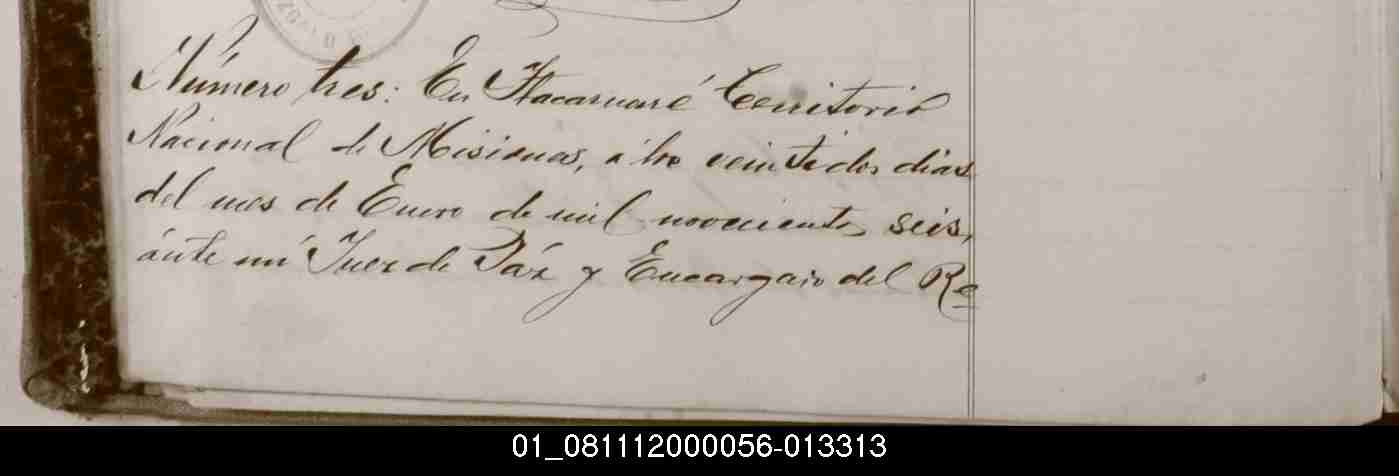 Número tres: En Itacaruaré Territorio
Nacional de Misiones, a los veintidos dias
del mes de Enero de mil novecientos seis,
ánte mí Juez de Páz y Encargado del Re
01_081112000056-013313